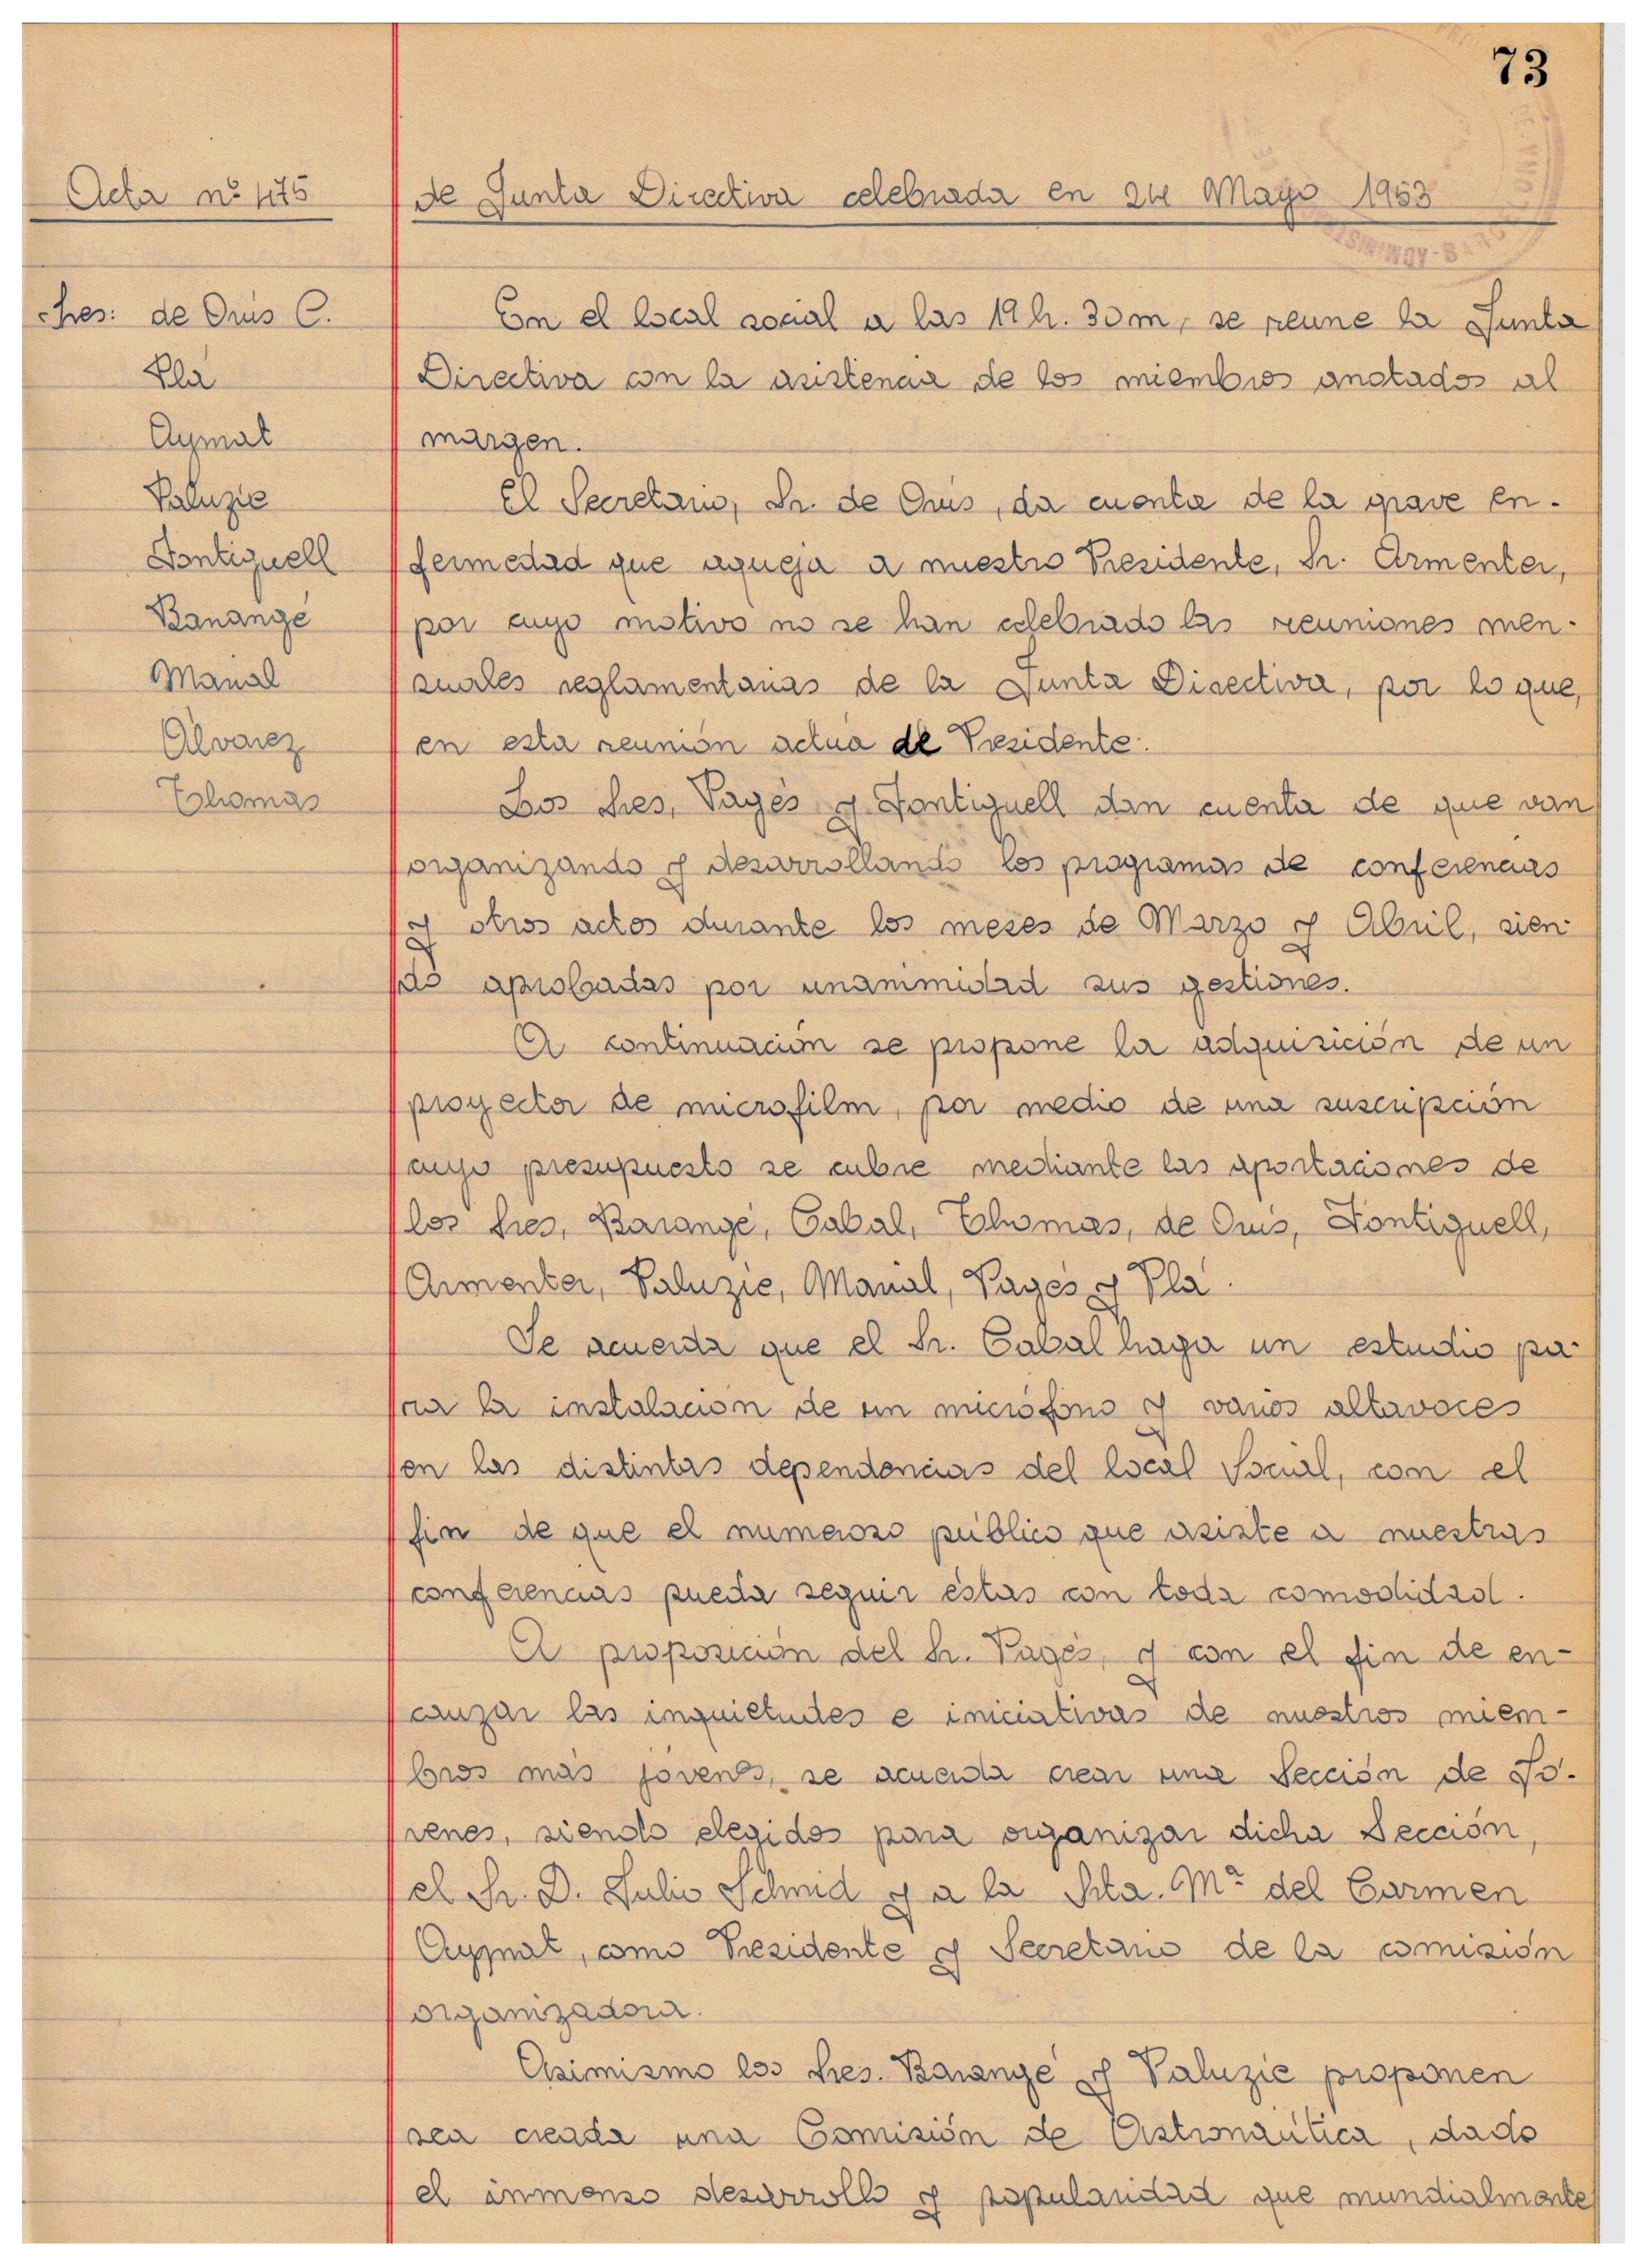 73
Acta nº 475 de Junta Directiva celebrada en 24 Mayo 1963
Sres: de Orús C.
Plá
Aymat
Paluzie
Fontiguell
Barangé
Marial
Alvarez
Thomas
En el local social a las 19 h. 30 m, se reune la Junta
Directiva con la asistencia de los miembros anotados al
margen.
El Secretario, Sr. de Orús, da cuenta de la grave en-
fermedad que aqueja a nuestro Presidente, Sr. Armenter,
por cuyo motivo no se han celebrado las reuniones men-
suales reglamentarias de la Junta Directiva, por lo que,
en esta reunión actua de Presidente.
Los Sres, Pagés y Fontiguell dan cuenta de que van
organizando y desarrollando los programas de conferencias
y otros actos durante los meses de Marzo y Abril, sien-
do aprobadas por unanimidad sus gestiones.
A continuación se propone la adquisición de un
proyector de microfilm, por medio de una suscripción
cuyo presupuesto se cubre mediante las aportaciones de
los Sres, Barangé, Cabal, Thomas, de Orús, Fontiguell,
Armenter, Paluzie, Marial, Pagés y Plá.
Se acuerda que el Sr. Cabal haga un estudio pa-
ra la instalación de un micrófono y varios altavoces
en las distintas dependencias del local Social, con el
fin de que el numeroso público que asiste a nuestras
conferencias pueda seguir éstas con toda comodidad.
A proposición del Sr. Pagés, y con el fin de en-
cauzar las inquietudes e iniciativas de nuestros miem-
bros más jóvenes, se acuerda crear una Sección de Jó-
venes, siendo elegidos para organizar dicha Sección,
el Sr. D. Julio Schmid y a la Srta. Mª del Carmen
Aymat, como Presidente y Secretario de la comisión
organizadora.
Asimismo los Sres. Barangé y Paluzie proponen
sea creada una Comisión de Astronáutica, dado
el inmenso desarrollo y popularidad que mundialmente